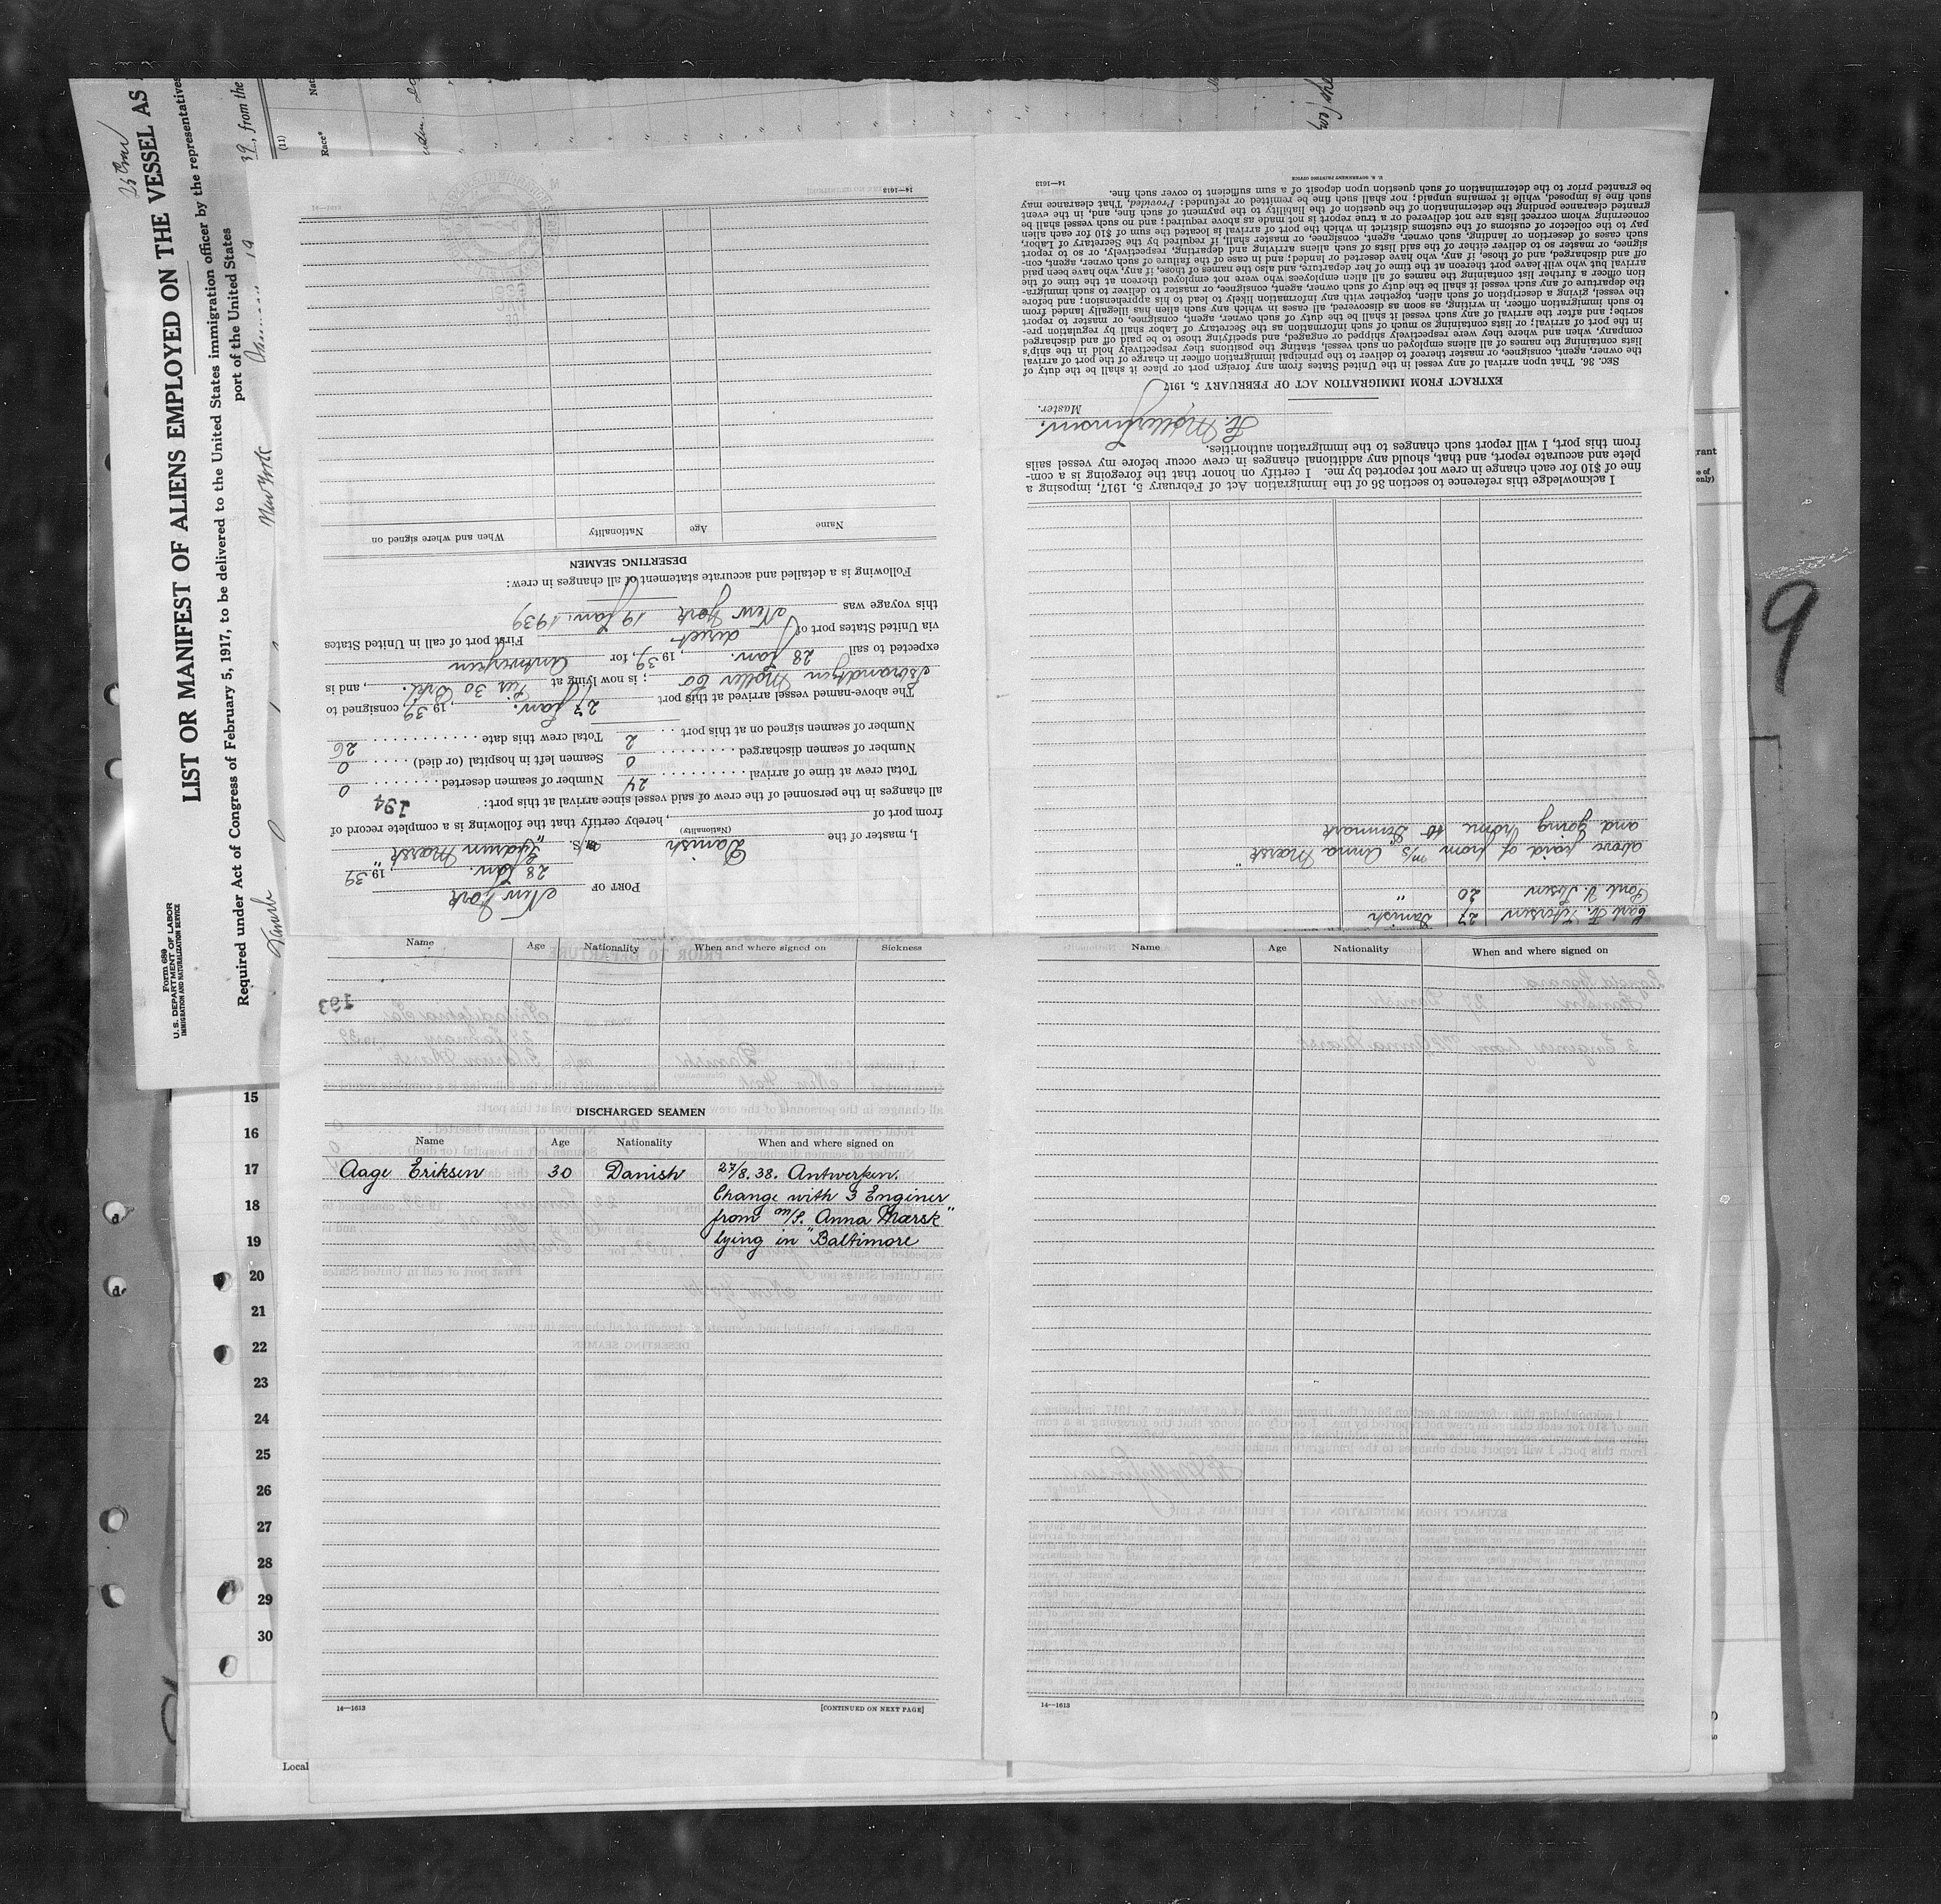 25 
LIST OR MANIFEST OF ALIENS EMPLOYED ON THE VESSEL AS
Required under Act of Congress of February 5, 1917, to be delivered to the United States immigration officer by the representatives
port of the United States
Form 689
U. S. DEPARTMENT OF LABOR
IMMIGRATION AND NATURALIZATION SERVICE
New York
19
39, from the
(11)
Race*
PORT OF New York
28 Jan., 1939
I, master of the Danish m/S. "Gudrun Mærsk"
(Nationality)
from port of , hereby certify that the following is a complete record of
all changes in the personnel of the crew of said vessel since arrival at this port: 194
Total crew at time of arrival 24 Number of seamen deserted 0
Number of seamen discharged 0 Seamen left in hospital (or died) 0
Number of seamen signed on at this port 2 Total crew this date 26
The above-named vessel arrived at this port 27 Jan., 1939, consigned to
Isbrandtsen Moller Co; is now lying at Pier 30 Brkl., and is
expected to sail 28 Jan., 1939, for Antwerpen
via United States port of direct First port of call in United States
this voyage was New York 19 Jan. 1939
Following is a detailed and accurate statement of all changes in crew:
DESERTING SEAMEN
Name Age Nationality When and where signed on
14—1613
Carl H. Petersen 27 Danish
20 "
above paid of from m/S "Anna Mærsk"
and going home to Danmark
I acknowledge this reference to section 36 of the Immigration Act of February 5, 1917, imposing a
fine of $10 for each change in crew not reported by me. I certify on honor that the foregoing is a com-
plete and accurate report, and that, should any additional changes in crew occur before my vessel sails
from this port, I will report such changes to the immigration authorities.
Master.
EXTRACT FROM IMMIGRATION ACT OF FEBRUARY 5, 1917
SEC. 36. That upon arrival of any vessel in the United States from any foreign port or place it shall be the duty of
the owner, agent, consignee, or master thereof to deliver to the principal immigration officer in charge of the port of arrival
lists containing the names of all aliens employed on such vessel, stating the positions they respectively hold in the ship's
company, when and where they were respectively shipped or engaged, and specifying those to be paid off and discharged
in the port of arrival; or lists containing so much of such information as the Secretary of Labor shall by regulation pre-
scribe; and after the arrival of any such vessel it shall be the duty of such owner, agent, consignee, or master to report
to such immigration officer, in writing, as soon as discovered, all cases in which any such alien has illegally landed from
the vessel, giving a description of such alien, together with any information likely to lead to his apprehension; and before
the departure of any such vessel it shall be the duty of such owner, agent, consignee, or master to deliver to such immigra-
tion officer a further list containing the names of all alien employees who were not employed thereon at the time of the
arrival but who will leave port thereon at the time of her departure, and also the names of those, if any, who have been paid
off and discharged, and of those, if any, who have deserted or landed; and in case of the failure of such owner, agent, con-
signee, or master so to deliver either of the said lists of such aliens arriving and departing, respectively, or so to report
such cases of desertion or landing, such owner, agent, consignee, or master shall, if required by the Secretary of Labor,
pay to the collector of customs of the customs district in which the port of arrival is located the sum of $10 for each alien
concerning whom correct lists are not delivered or a true report is not made as above required; and no such vessel shall be
granted clearance pending the determination of the question of the liability to the payment of such fine, and, in the event
such fine is imposed, while it remains unpaid; nor shall such fine be remitted or refunded: Provided, That clearance may
be granted prior to the determination of such question upon deposit of a sum sufficient to cover such fine.
14—1613 U. S. GOVERNMENT PRINTING OFFICE
Name Age Nationality When and where signed on Sickness
193
DISCHARGED SEAMEN
Name Age Nationality When and where signed on
Aage Eriksen 30 Danish 27/8. 38. Antwerpen.
Change with 3 Enginer
from m/S. Anna Mærsk"
lying in "Baltimore
14—1613 [CONTINUED ON NEXT PAGE]
Name Age Nationality When and where signed on
14—1613
15
16
17
18
19
20
21
22
23
24
25
26
27
28
29
30
Local
9